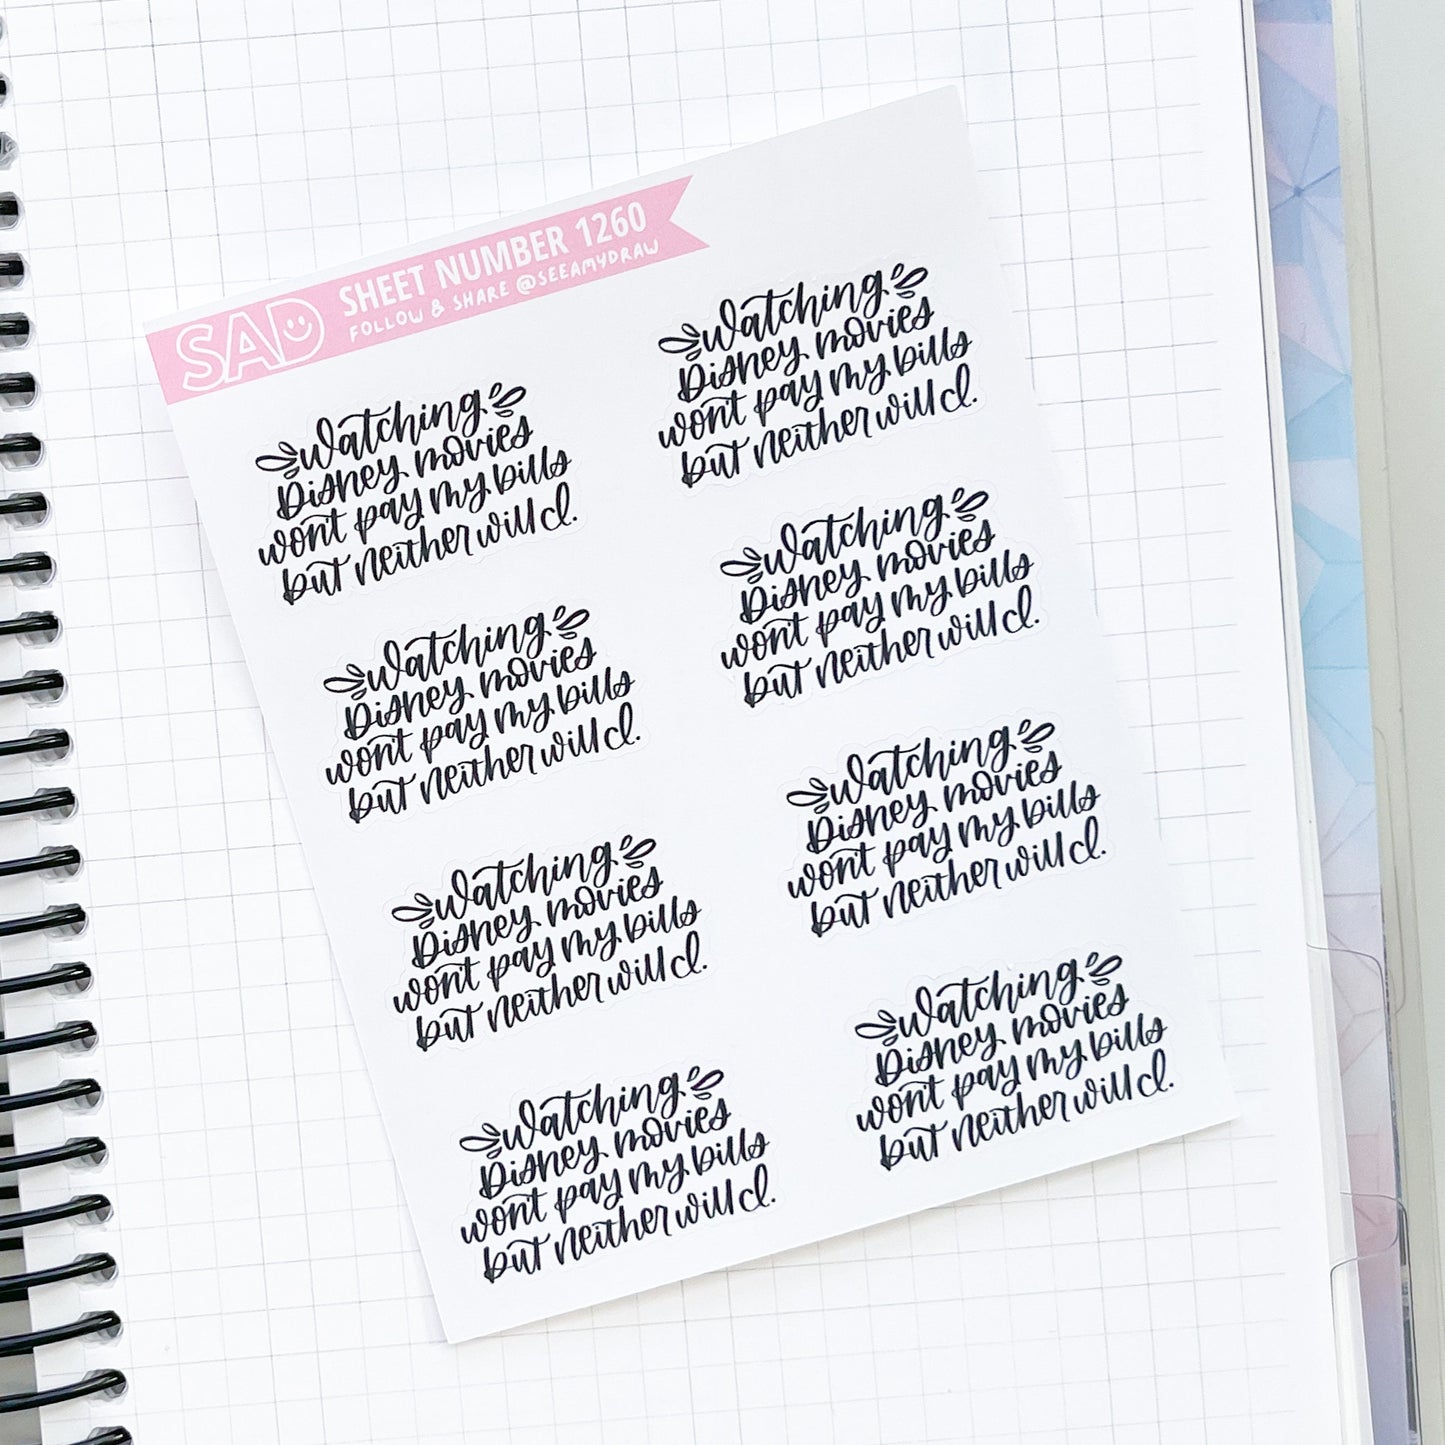 SAD
SHEET NUMBER 1260
FOLLOW & SHARE @SEEAMYDRAW
Watching
Disney movies
won't pay my bills
but neither will I.
Watching
Disney movies
won't pay my bills
but neither will I.
Watching
Disney movies
won't pay my bills
but neither will I.
Watching
Disney movies
won't pay my bills
but neither will I.
Watching
Disney movies
won't pay my bills
but neither will I.
Watching
Disney movies
won't pay my bills
but neither will I.
Watching
Disney movies
won't pay my bills
but neither will I.
Watching
Disney movies
won't pay my bills
but neither will I.